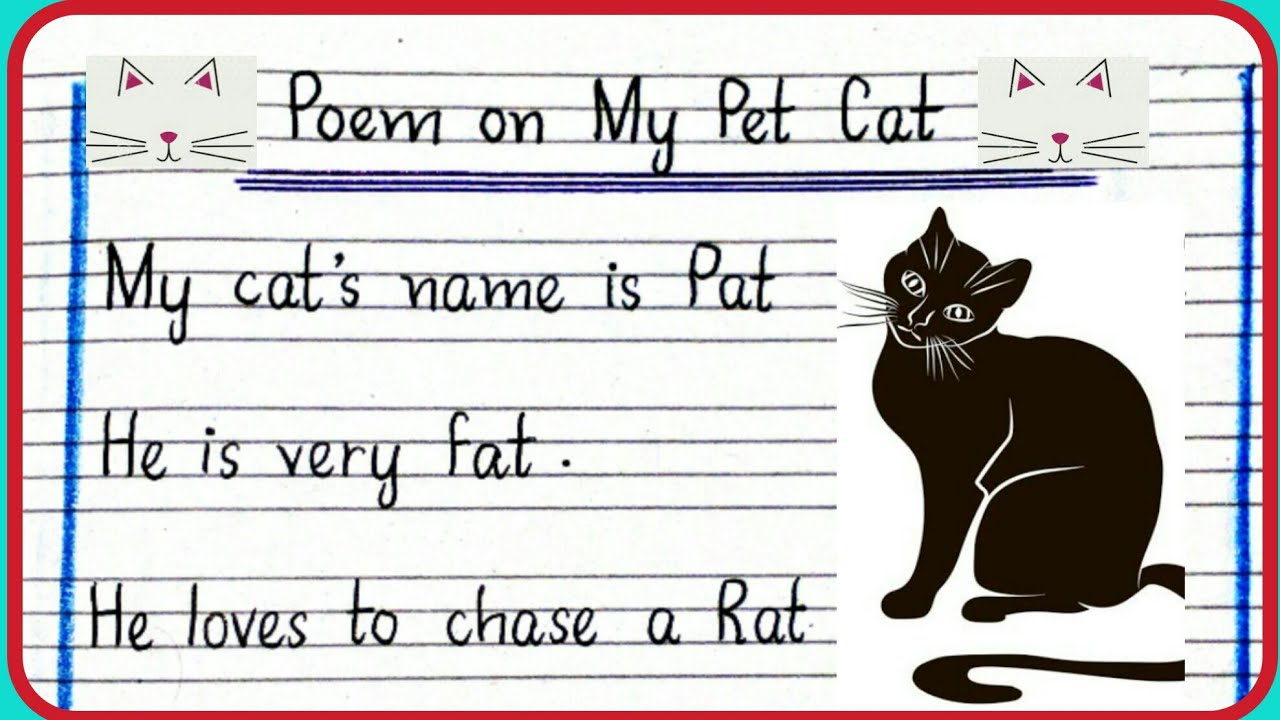 Poem on My Pet Cat
My cat's name is Pat
He is very fat.
He loves to chase a Rat